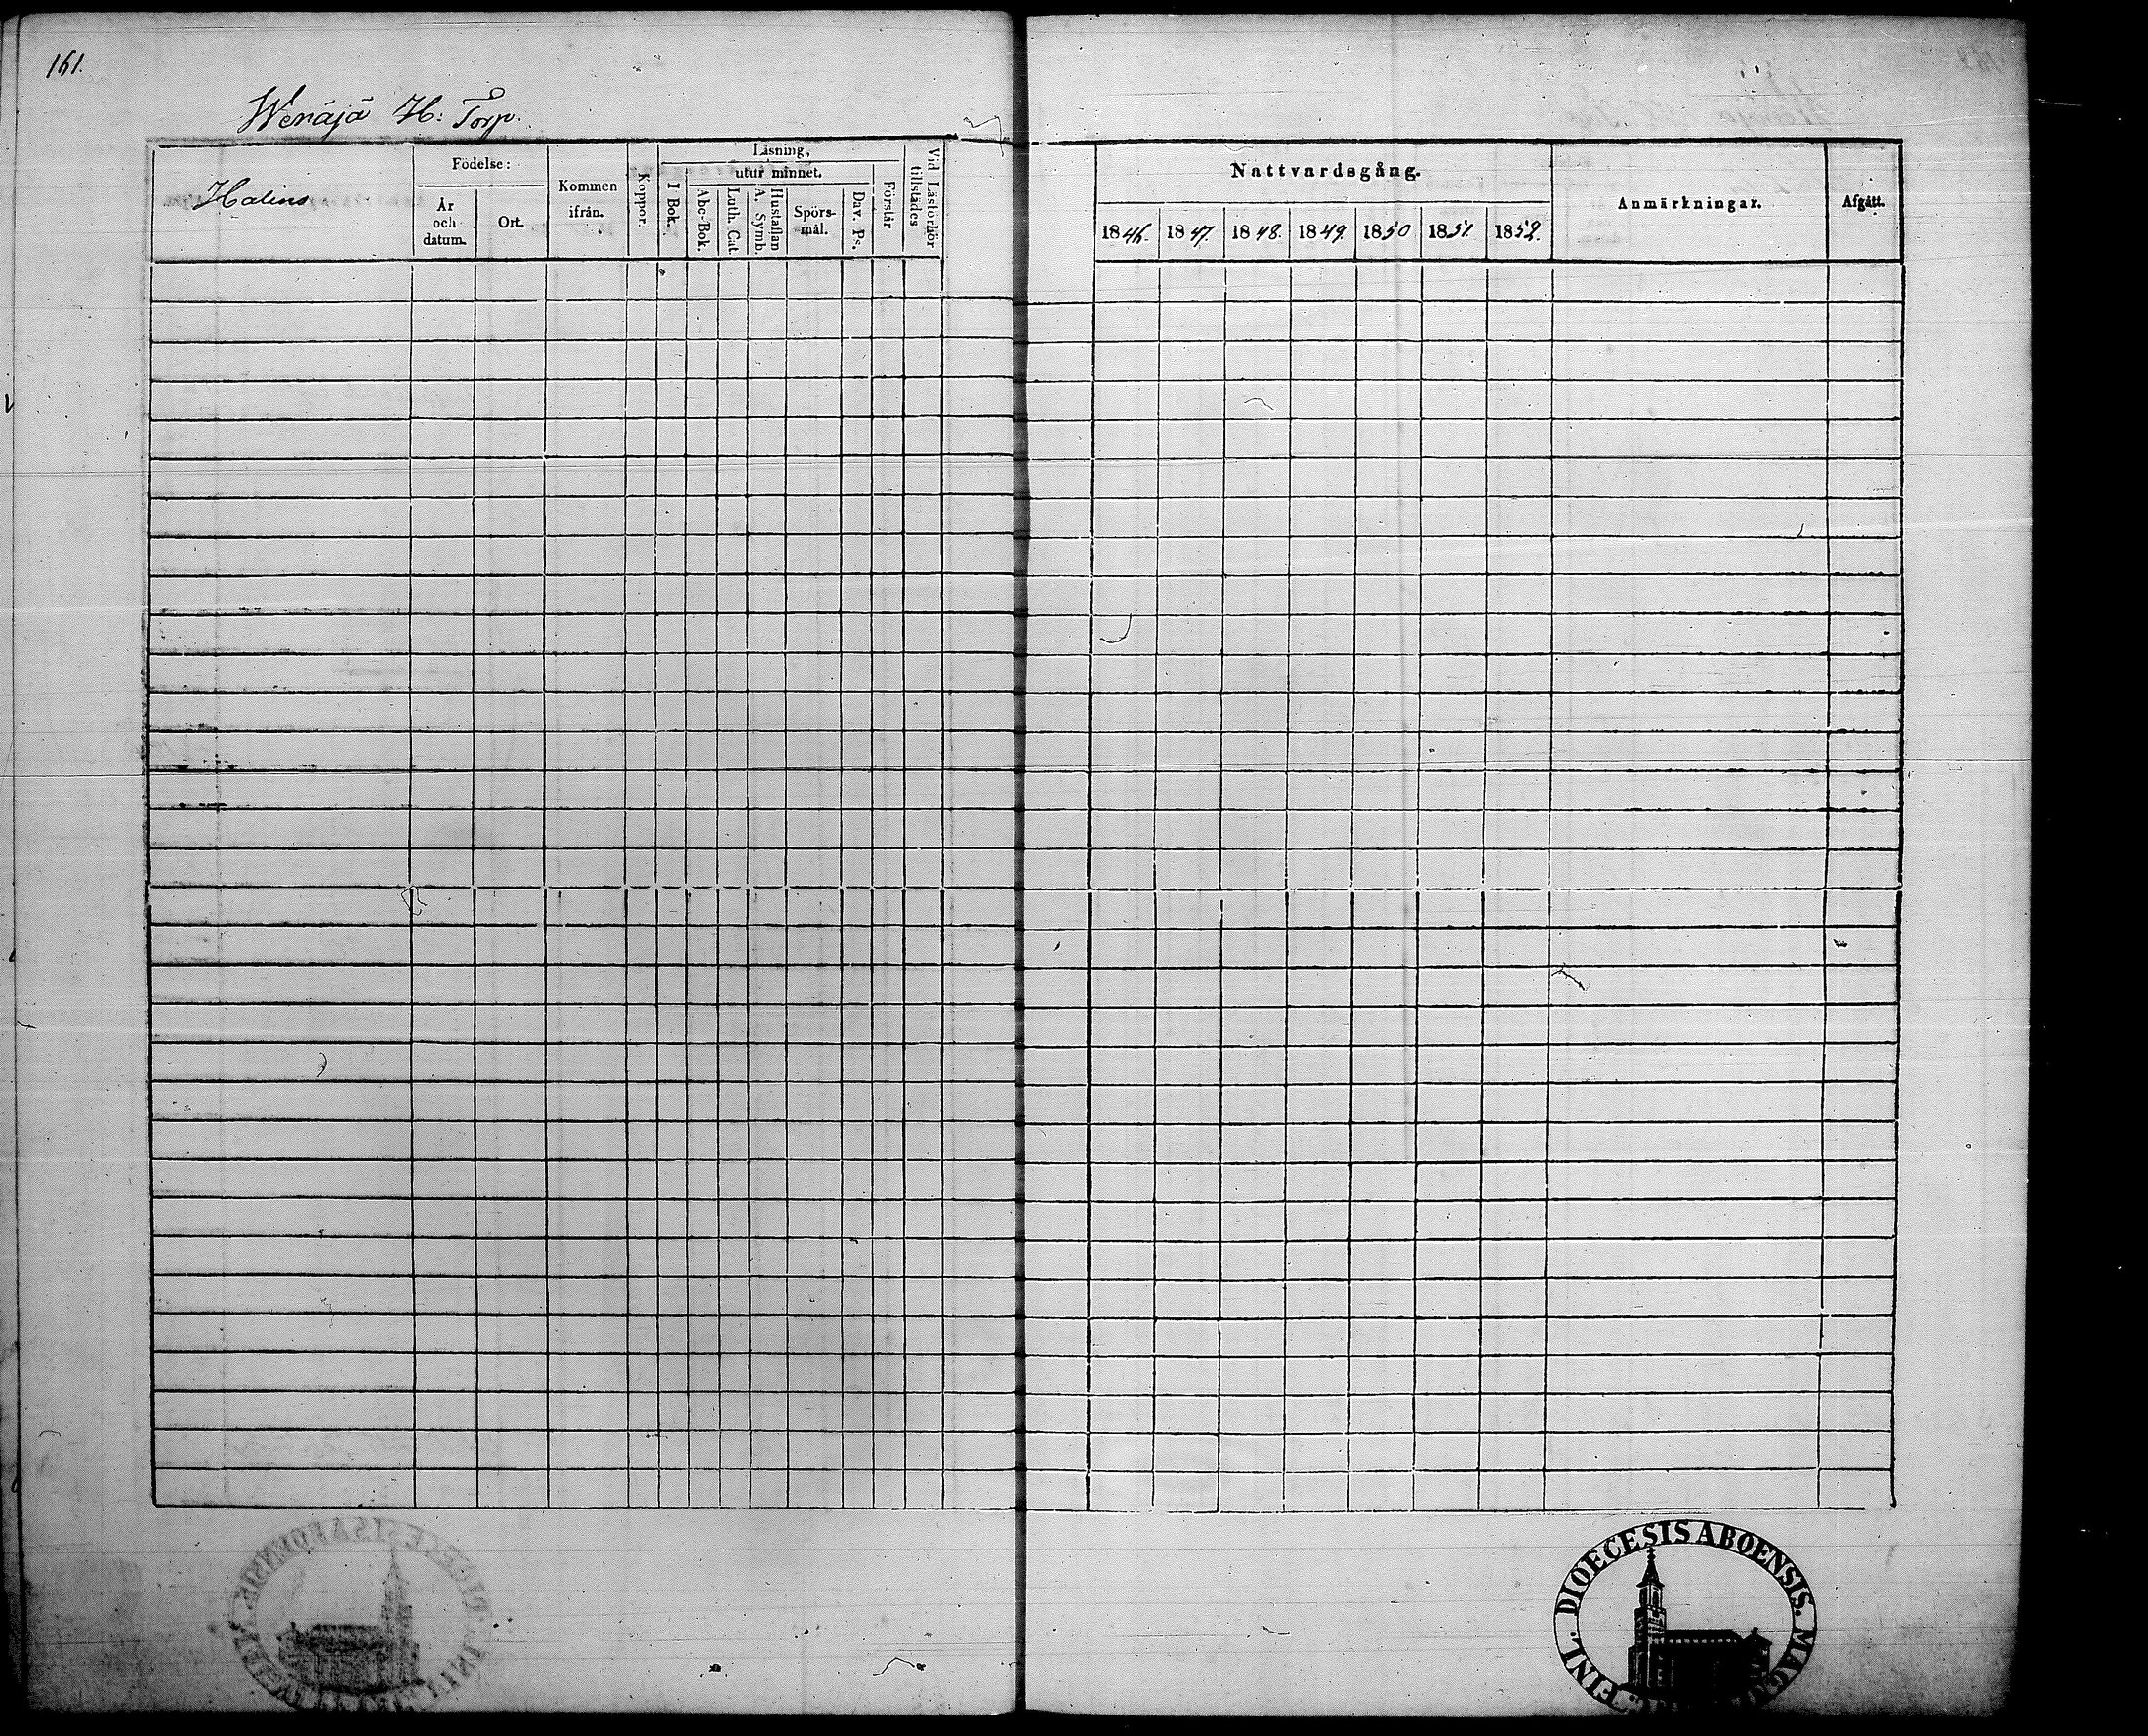 161.
Wenäjä H: Torp.
Halins
Födelse:
År
och
datum.
Ort.
Kommen
ifrån.
Koppor.
Läsning,
I Bok.
utur minnet.
Abc-Bok.
Luth. Cat.
Hustaflan
A. Symb.
Spörs-
mål.
Dav. Ps.
Förstår
Vid Läsförhör
tillstädes
Nattvardsgång.
1846.
1847.
1848.
1849.
1850
1851.
1852.
Anmärkningar.
Afgått.
FINL. DIOECESIS ABOENSIS.